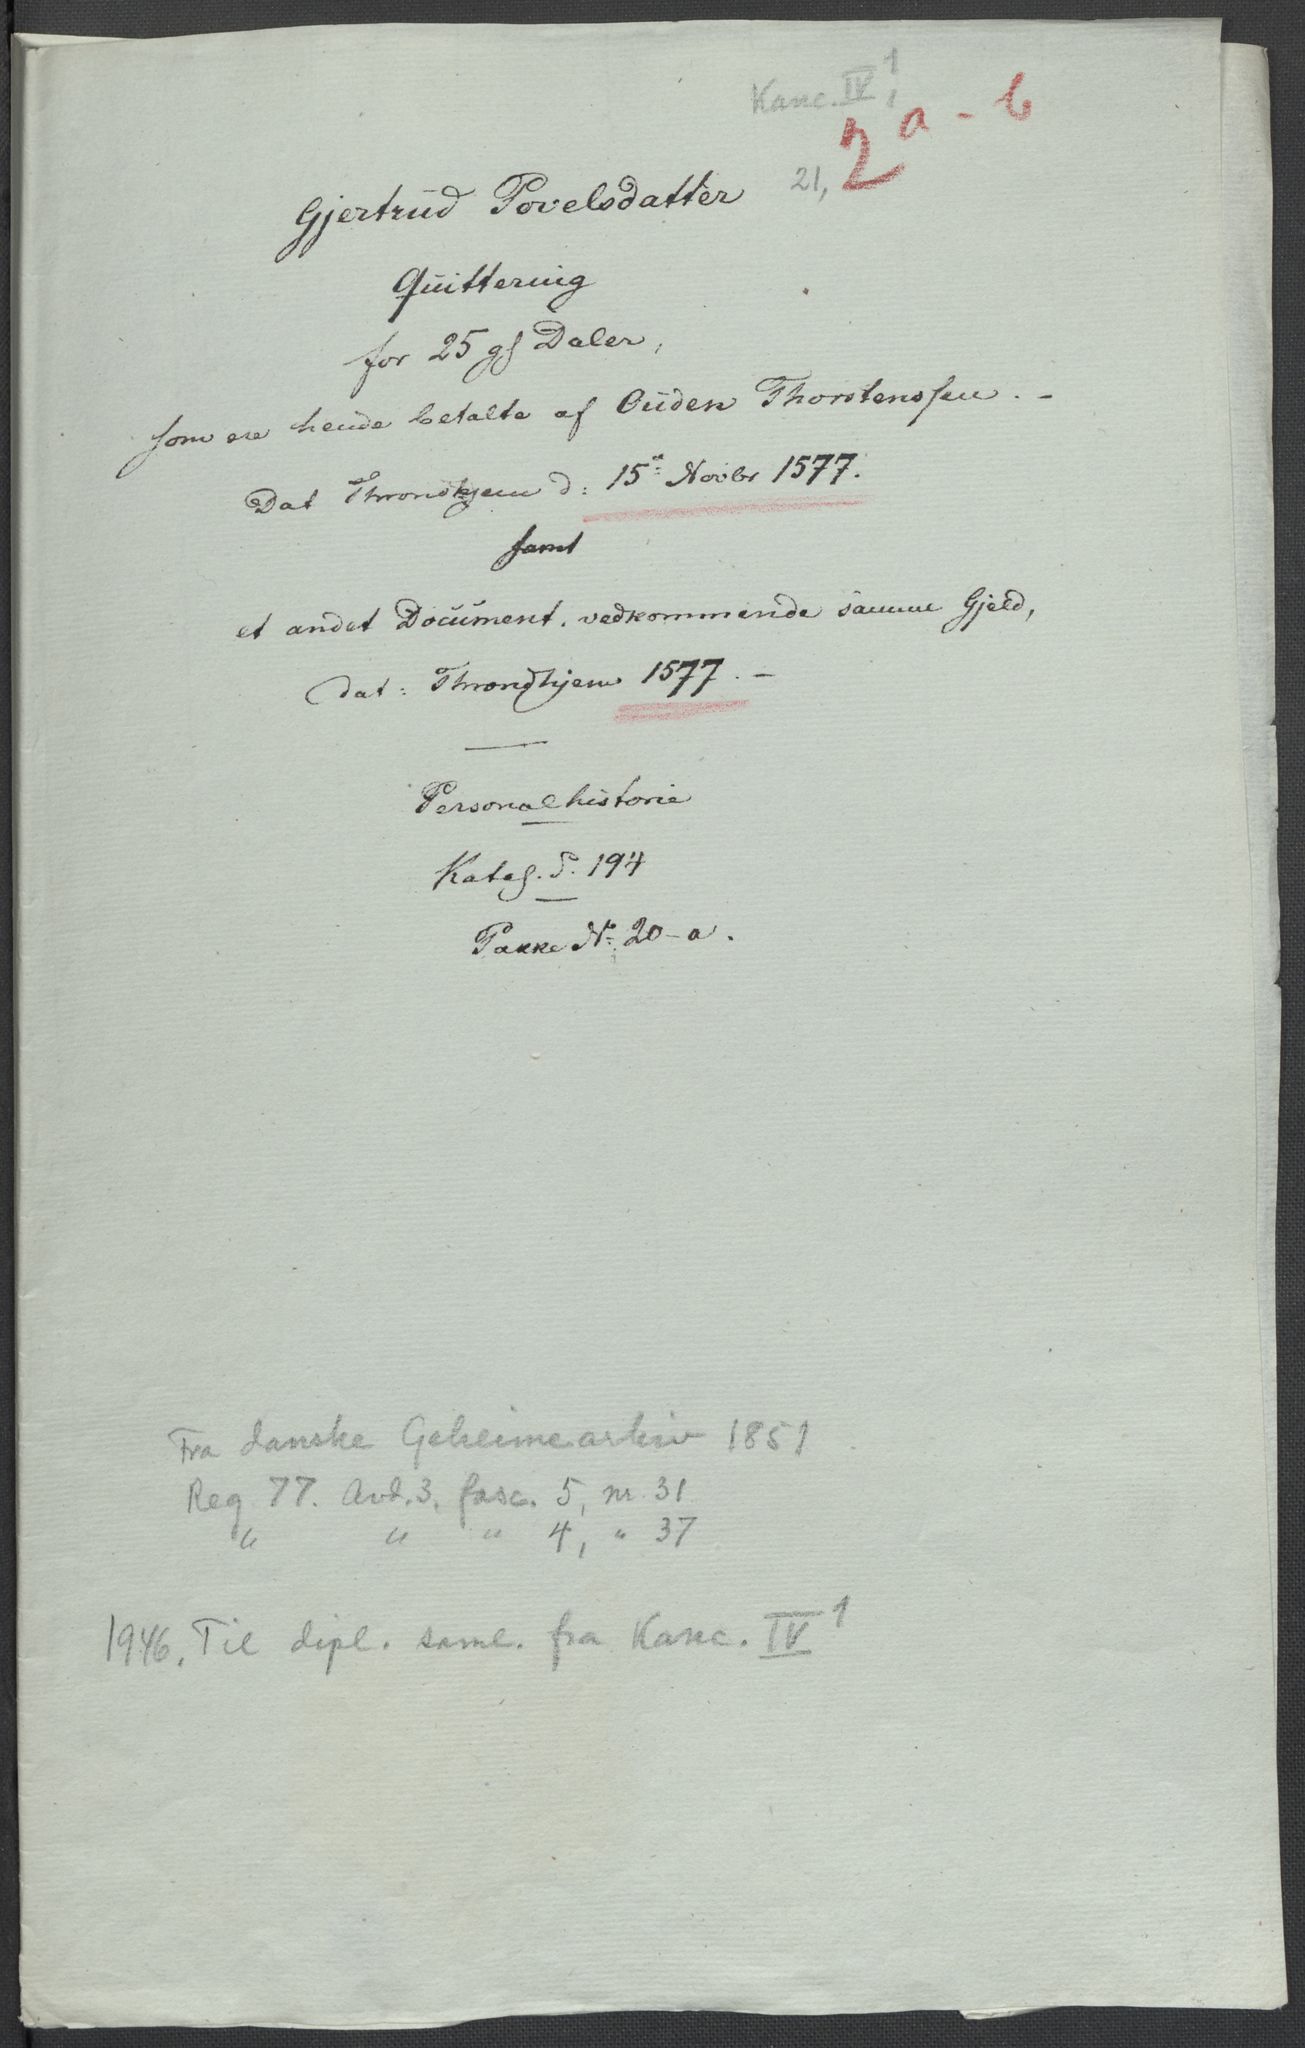 Kanc. IV 1
21, 2 a - b
Gjertrud Povelsdatter
Quittering
for 25 gl Daler,
som ere hende betalte af Ouden Thorstenssen. -
Dat Throndhjem d: 15de Novbr 1577.
samt
et andet Document, vedkommende samme Gjeld,
dat: Throndhjem 1577. -
Personalhistorie
Katal. P. 194
Pakke No 20-a.
Fra danske Geheimearkiv 1851
Reg 77. Avd. 3. fasc. 5, nr 31
" " " 4, " 37
1946. Til dipl. saml. fra Kanc. IV 1